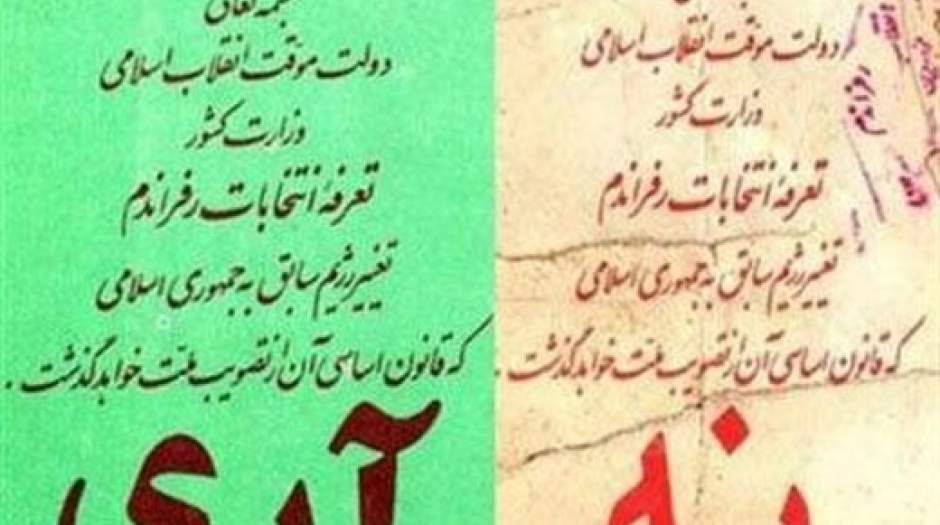 بسمه تعالی
دولت موقت انقلاب اسلامی
وزارت کشور
تعرفهٔ انتخابات رفراندم
تغییر رژیم سابق به جمهوری اسلامی
که قانون اساسی آن از تصویب ملت خواهد گذشت .
آری
دولت موقت انقلاب اسلامی
وزارت کشور
تعرفهٔ انتخابات رفراندم
تغییر رژیم سابق به جمهوری اسلامی
که قانون اساسی آن از تصویب ملت خواهد گذشت .
نه
رفراندم